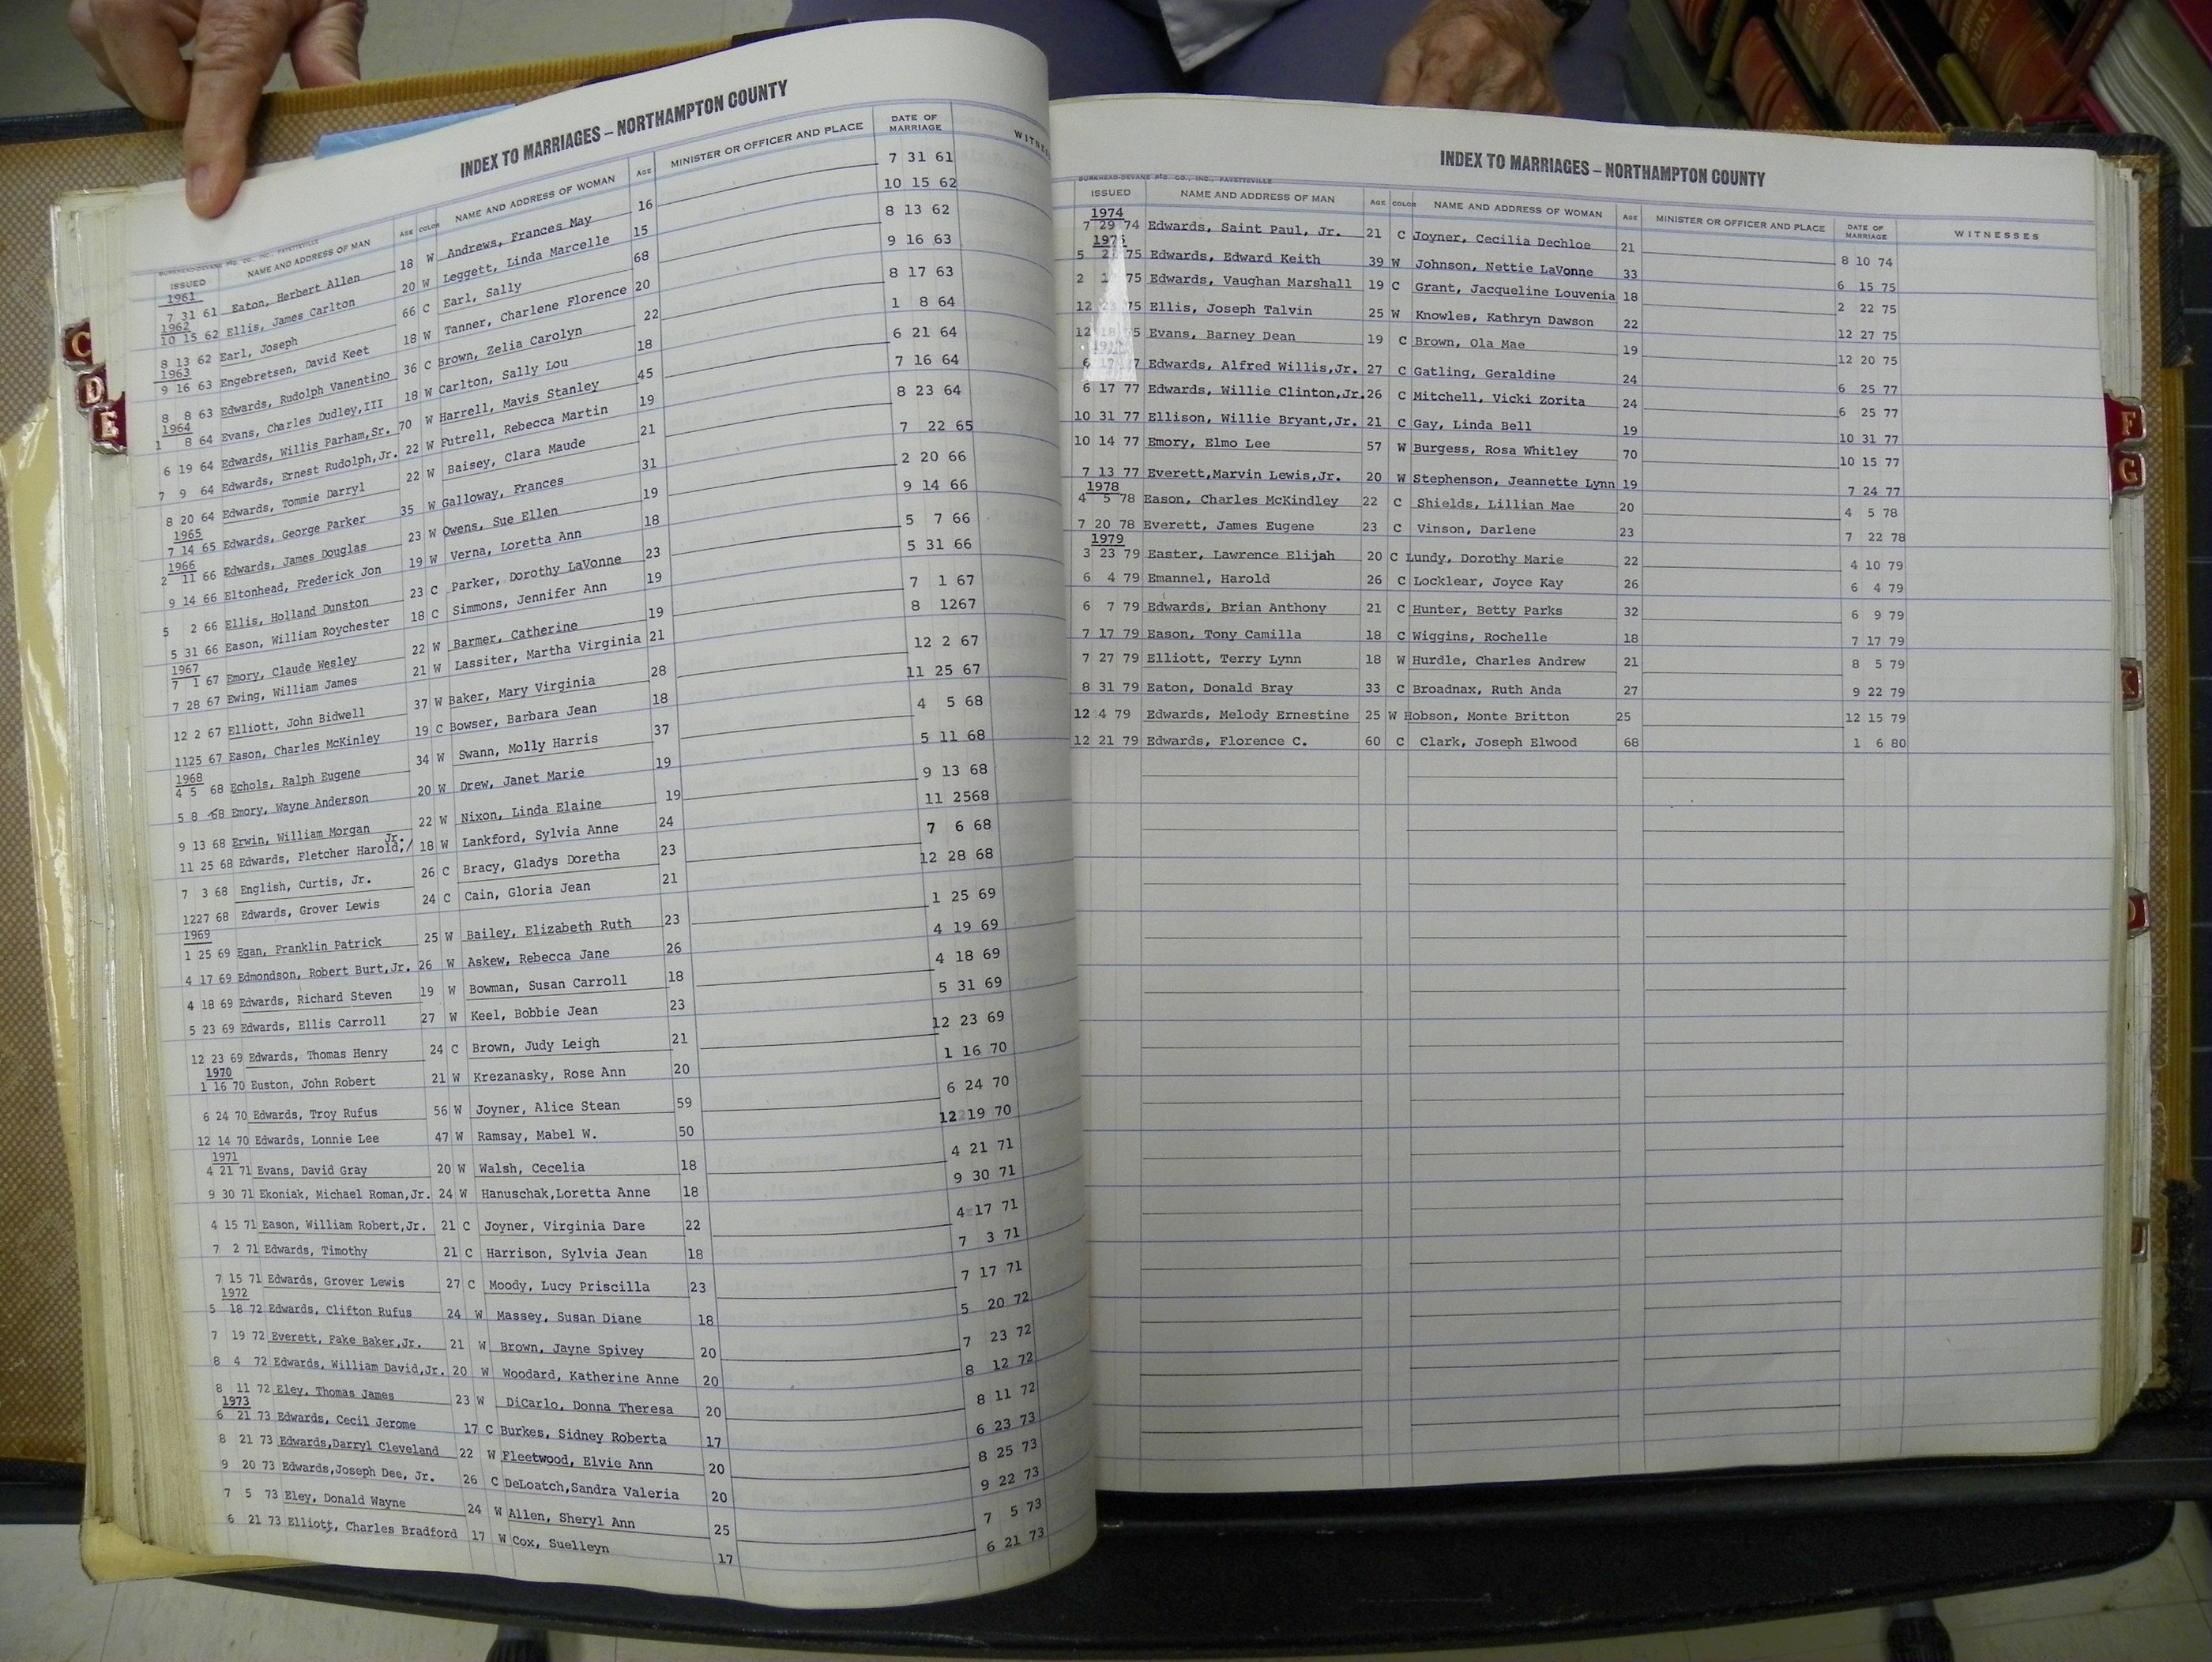 INDEX TO MARRIAGES – NORTHAMPTON COUNTY
BURKHEAD-DEVANE P'T'G. CO., INC., FAYETTEVILLE
ISSUED NAME AND ADDRESS OF MAN AGE COLOR NAME AND ADDRESS OF WOMAN AGE MINISTER OR OFFICER AND PLACE DATE OF MARRIAGE
1961
7 31 61 Eaton, Herbert Allen 18 W Andrews, Frances May 16 7 31 61
1962
10 15 62 Ellis, James Carlton 20 W Leggett, Linda Marcelle 15 10 15 62
8 13 62 Earl, Joseph 66 C Earl, Sally 68 8 13 62
1963
9 16 63 Engebretsen, David Keet 18 W Tanner, Charlene Florence 20 9 16 63
8 8 63 Edwards, Rudolph Vanentino 36 C Brown, Zelia Carolyn 22 8 17 63
1964
1 8 64 Evans, Charles Dudley,III 18 W Carlton, Sally Lou 18 1 8 64
6 19 64 Edwards, Willis Parham,Sr. 70 W Harrell, Mavis Stanley 45 6 21 64
7 9 64 Edwards, Ernest Rudolph,Jr. 22 W Futrell, Rebecca Martin 19 7 16 64
8 20 64 Edwards, Tommie Darryl 22 W Baisey, Clara Maude 21 8 23 64
1965
7 14 65 Edwards, George Parker 35 W Galloway, Frances 31 7 22 65
1966
2 11 66 Edwards, James Douglas 23 W Owens, Sue Ellen 19 2 20 66
9 14 66 Eltonhead, Frederick Jon 19 W Verna, Loretta Ann 18 9 14 66
5 2 66 Ellis, Holland Dunston 23 C Parker, Dorothy LaVonne 23 5 7 66
5 31 66 Eason, William Roychester 18 C Simmons, Jennifer Ann 19 5 31 66
1967
7 1 67 Emory, Claude Wesley 22 W Barmer, Catherine 19 7 1 67
7 28 67 Ewing, William James 21 W Lassiter, Martha Virginia 21 8 1267
12 2 67 Elliott, John Bidwell 37 W Baker, Mary Virginia 28 12 2 67
1125 67 Eason, Charles McKinley 19 C Bowser, Barbara Jean 18 11 25 67
1968
4 5 68 Echols, Ralph Eugene 34 W Swann, Molly Harris 37 4 5 68
5 8 68 Emory, Wayne Anderson 20 W Drew, Janet Marie 19 5 11 68
9 13 68 Erwin, William Morgan 22 W Nixon, Linda Elaine 19 9 13 68
Jr.
11 25 68 Edwards, Fletcher Harold,/ 18 W Lankford, Sylvia Anne 24 11 2568
7 3 68 English, Curtis, Jr. 26 C Bracy, Gladys Doretha 23 7 6 68
1227 68 Edwards, Grover Lewis 24 C Cain, Gloria Jean 21 12 28 68
1969
1 25 69 Egan, Franklin Patrick 25 W Bailey, Elizabeth Ruth 23 1 25 69
4 17 69 Edmondson, Robert Burt,Jr. 26 W Askew, Rebecca Jane 26 4 19 69
4 18 69 Edwards, Richard Steven 19 W Bowman, Susan Carroll 18 4 18 69
5 23 69 Edwards, Ellis Carroll 27 W Keel, Bobbie Jean 23 5 31 69
12 23 69 Edwards, Thomas Henry 24 C Brown, Judy Leigh 21 12 23 69
1970
1 16 70 Euston, John Robert 21 W Krezanasky, Rose Ann 20 1 16 70
6 24 70 Edwards, Troy Rufus 56 W Joyner, Alice Stean 59 6 24 70
12 14 70 Edwards, Lonnie Lee 47 W Ramsay, Mabel W. 50 12 19 70
1971
4 21 71 Evans, David Gray 20 W Walsh, Cecelia 18 4 21 71
9 30 71 Ekoniak, Michael Roman,Jr. 24 W Hanuschak,Loretta Anne 18 9 30 71
4 15 71 Eason, William Robert,Jr. 21 C Joyner, Virginia Dare 22 4 17 71
7 2 71 Edwards, Timothy 21 C Harrison, Sylvia Jean 18 7 3 71
7 15 71 Edwards, Grover Lewis 27 C Moody, Lucy Priscilla 23 7 17 71
1972
5 18 72 Edwards, Clifton Rufus 24 W Massey, Susan Diane 18 5 20 72
7 19 72 Everett, Fake Baker,Jr. 21 W Brown, Jayne Spivey 20 7 23 72
8 4 72 Edwards, William David,Jr. 20 W Woodard, Katherine Anne 20 8 12 72
8 11 72 Eley, Thomas James 23 W DiCarlo, Donna Theresa 20 8 11 72
1973
6 21 73 Edwards, Cecil Jerome 17 C Burkes, Sidney Roberta 17 6 23 73
8 21 73 Edwards,Darryl Cleveland 22 W Fleetwood, Elvie Ann 20 8 25 73
9 20 73 Edwards,Joseph Dee, Jr. 26 C DeLoatch,Sandra Valeria 20 9 22 73
7 5 73 Eley, Donald Wayne 24 W Allen, Sheryl Ann 25 7 5 73
6 21 73 Elliott, Charles Bradford 17 W Cox, Suelleyn 17 6 21 73
C
D
E
INDEX TO MARRIAGES – NORTHAMPTON COUNTY
BURKHEAD-DEVANE P'T'G. CO., INC., FAYETTEVILLE
ISSUED NAME AND ADDRESS OF MAN AGE COLOR NAME AND ADDRESS OF WOMAN AGE MINISTER OR OFFICER AND PLACE DATE OF MARRIAGE WITNESSES
1974
7 29 74 Edwards, Saint Paul, Jr. 21 C Joyner, Cecilia Dechloe 21 8 10 74
1975
5 75 Edwards, Edward Keith 39 W Johnson, Nettie LaVonne 33 6 15 75
2 75 Edwards, Vaughan Marshall 19 C Grant, Jacqueline Louvenia 18 2 22 75
12 23 75 Ellis, Joseph Talvin 25 W Knowles, Kathryn Dawson 22 12 27 75
12 18 75 Evans, Barney Dean 19 C Brown, Ola Mae 19 12 20 75
6 77 Edwards, Alfred Willis,Jr. 27 C Gatling, Geraldine 24 6 25 77
6 17 77 Edwards, Willie Clinton,Jr. 26 C Mitchell, Vicki Zorita 24 6 25 77
10 31 77 Ellison, Willie Bryant,Jr. 21 C Gay, Linda Bell 19 10 31 77
10 14 77 Emory, Elmo Lee 57 W Burgess, Rosa Whitley 70 10 15 77
7 13 77 Everett,Marvin Lewis,Jr. 20 W Stephenson, Jeannette Lynn 19 7 24 77
1978
4 5 78 Eason, Charles McKindley 22 C Shields, Lillian Mae 20 4 5 78
7 20 78 Everett, James Eugene 23 C Vinson, Darlene 23 7 22 78
1979
3 23 79 Easter, Lawrence Elijah 20 C Lundy, Dorothy Marie 22 4 10 79
6 4 79 Emannel, Harold 26 C Locklear, Joyce Kay 26 6 4 79
6 7 79 Edwards, Brian Anthony 21 C Hunter, Betty Parks 32 6 9 79
7 17 79 Eason, Tony Camilla 18 C Wiggins, Rochelle 18 7 17 79
7 27 79 Elliott, Terry Lynn 18 W Hurdle, Charles Andrew 21 8 5 79
8 31 79 Eaton, Donald Bray 33 C Broadnax, Ruth Anda 27 9 22 79
12 4 79 Edwards, Melody Ernestine 25 W Hobson, Monte Britton 25 12 15 79
12 21 79 Edwards, Florence C. 60 C Clark, Joseph Elwood 68 1 6 80
F
G
K